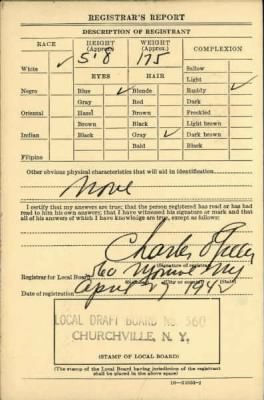 REGISTRAR'S REPORT
DESCRIPTION OF REGISTRANT
RACE HEIGHT (Approx.) WEIGHT (Approx.) COMPLEXION
5' 8 175
White ✓ Sallow
EYES HAIR Light
Negro Blue ✓ Blonde Ruddy ✓
Gray Red Dark
Oriental Hazel Brown Freckled
Brown Black Light brown
Indian Black Gray ✓ Dark brown
Bald Black
Filipino
Other obvious physical characteristics that will aid in identification
None
I certify that my answers are true; that the person registered has read or has had
read to him his own answers; that I have witnessed his signature or mark and that
all of his answers of which I have knowledge are true, except as follows:
Charles
(Signature of registrar)
Registrar for Local Board 560 Monroe N.Y.
(City or county) (State)
Date of registration April 27 1942
LOCAL DRAFT BOARD No. 560
CHURCHVILLE, N. Y.
(STAMP OF LOCAL BOARD)
(The stamp of the Local Board having jurisdiction of the registrant
shall be placed in the above space)